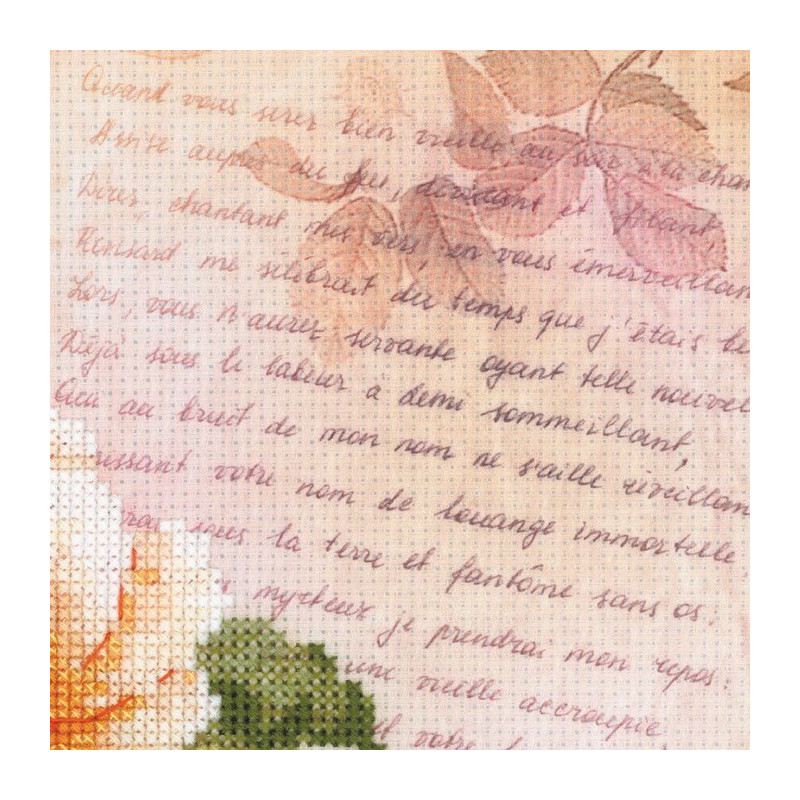 Quand vous serez bien vieille, au soir, à la chan
Assise aupres du feu, devidant et filant,
Direz, chantant mes vers, en vous émerveillan
Ronsard me célébrait du temps que j'étais be
Lors, vous n'aurez servante oyant telle nouvel
Déjà sous le labeur à demi sommeillant,
Qui au bruit de mon nom ne s'aille réveillan
issant votre nom de louange immortelle.
rai sous la terre et fantôme sans os:
myrteux je prendrai mon repos:
une vieille accroupie
et votre